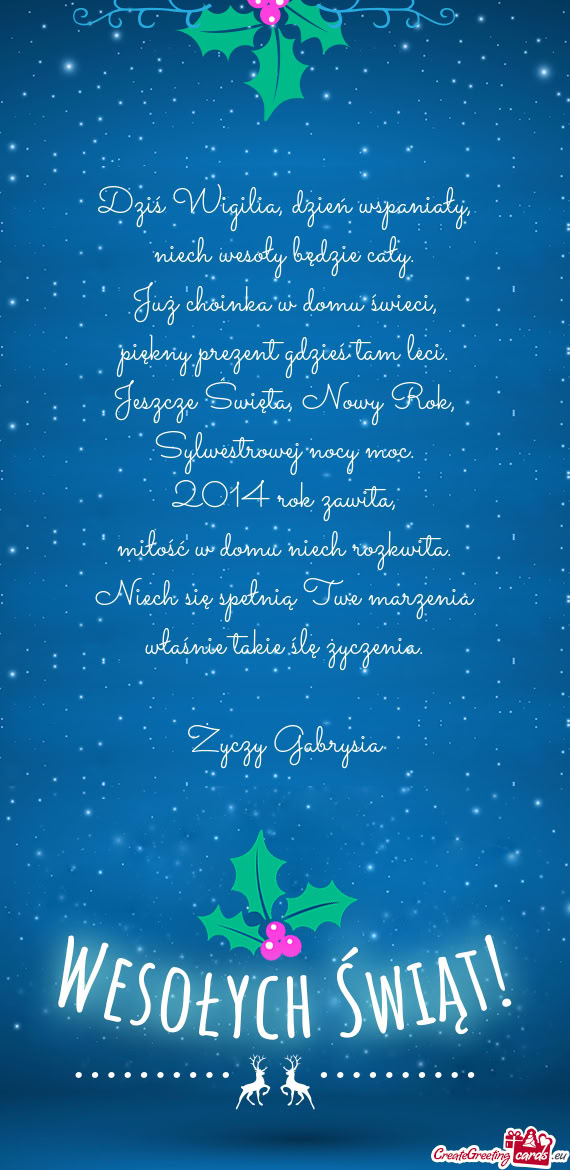 Dziś Wigilia, dzień wspaniały,
niech wesoły będzie cały.
Już choinka w domu świeci,
piękny prezent gdzieś tam leci.
Jeszcze Święta, Nowy Rok,
Sylwestrowej nocy moc.
2014 rok zawita,
miłość w domu niech rozkwita.
Niech się spełnią Twe marzenia
właśnie takie ślę życzenia.
Życzy Gabrysia
Wesołych Świąt!
CreateGreetingcards.eu